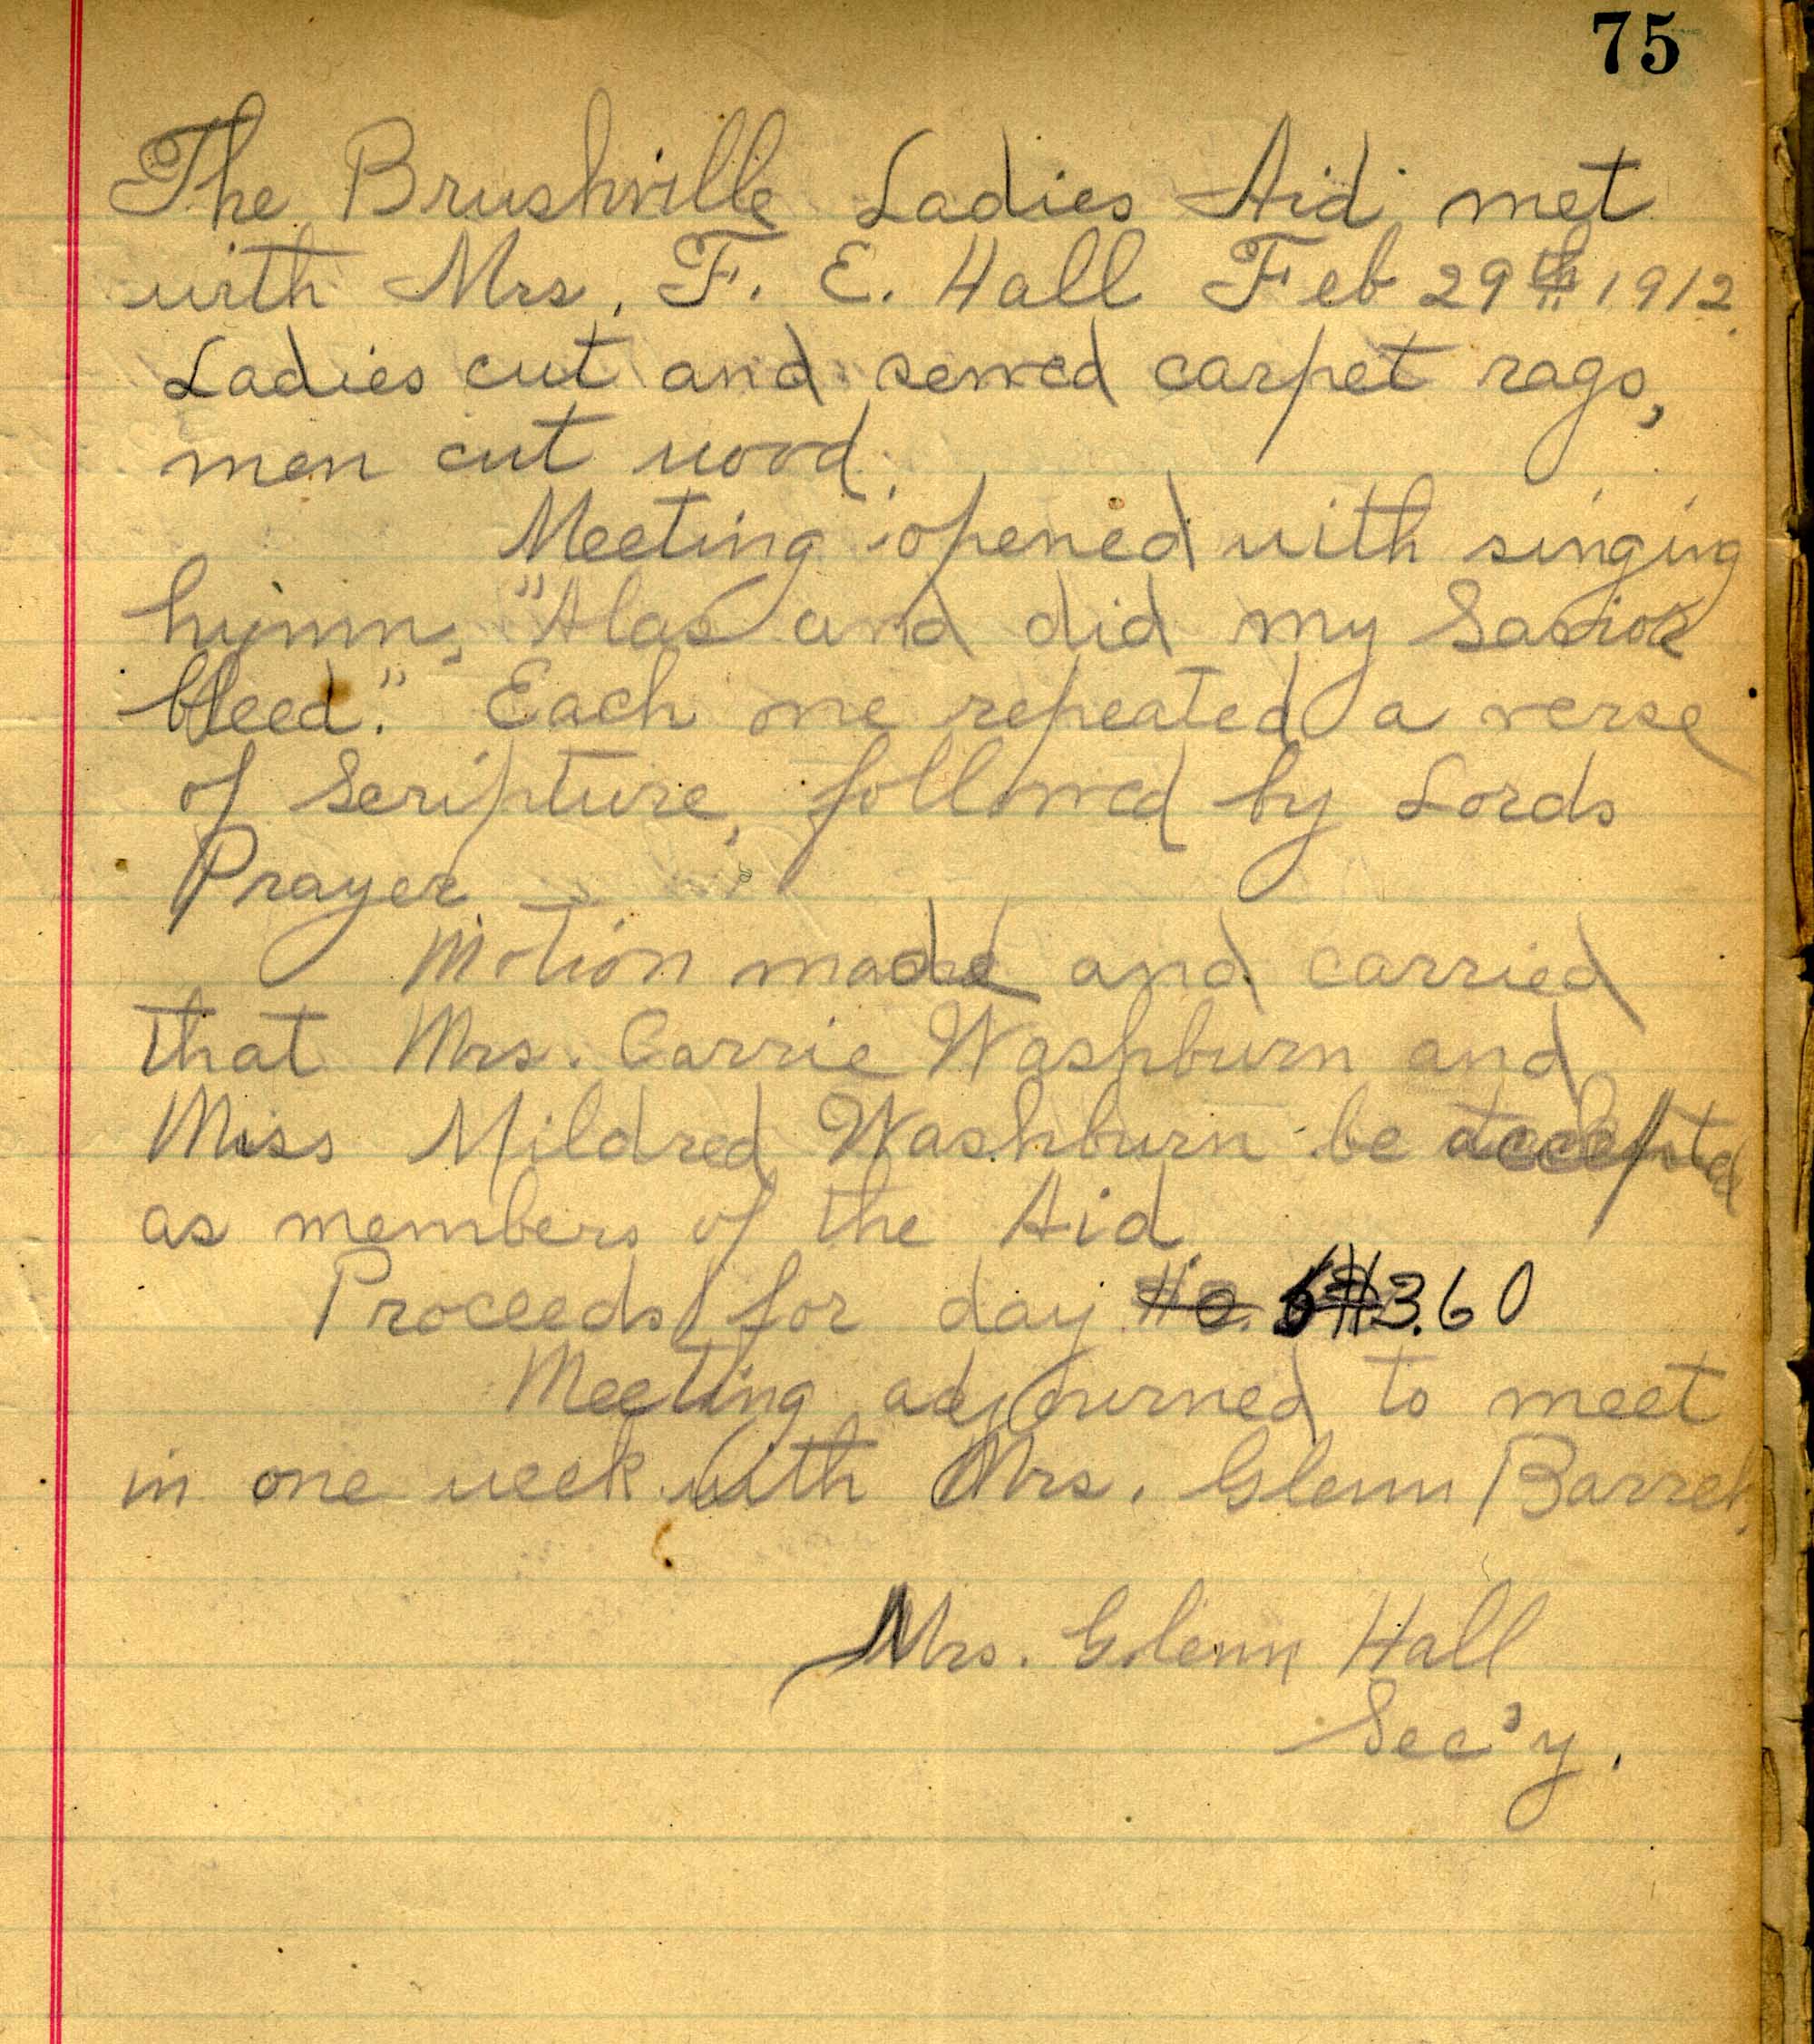 75
The Brushville Ladies Aid met
with Mrs. F. E. Hall Feb 29th 1912.
Ladies cut and sewed carpet rags,
men cut wood.
Meeting opened with singing
hymn, "Alas and did my Savior
bleed." Each one repeated a verse
of Scripture, followed by Lords
Prayer
Motion made and carried
that Mrs. Carrie Washburn and
Miss Mildred Washburn be accepted
as members of the Aid.
Proceeds for day $3.60
Meeting adjourned to meet
in one week with Mrs. Glenn
Mrs. Glenn Hall
Sec'y.